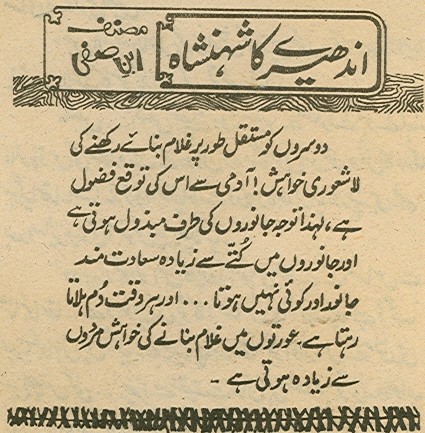 اندھیرے کا شہنشاہ
مصنف
ابن صفی
دوسروں کو مستقل طور پر غلام بنائے رکھنے کی
لاشعوری خواہش! آدمی سے اس کی توقع فضول
ہے، لہٰذا توجہ جانوروں کی طرف مبذول ہوتی ہے
اور جانوروں میں کُتّے سے زیادہ سعادت مند
جانور اور کوئی نہیں ہوتا ... اور ہر وقت دُم ہلاتا
رہتا ہے۔ عورتوں میں غلام بنانے کی خواہش مردوں
سے زیادہ ہوتی ہے ۔